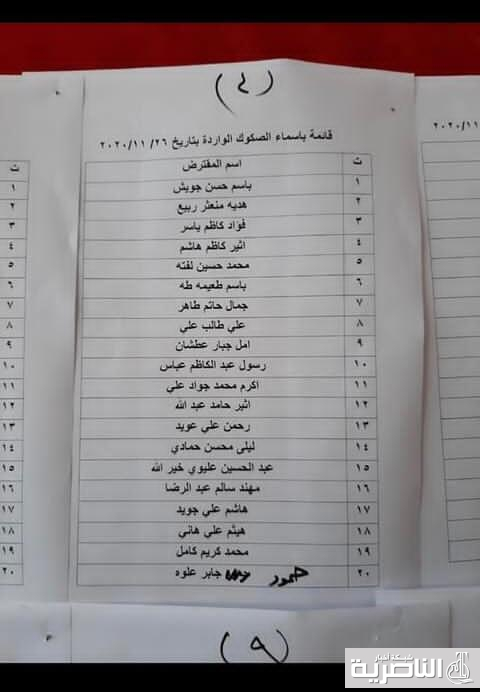 (٤)
قائمة باسماء الصكوك الواردة بتاريخ ٢٦/ ١١/ ٢٠٢٠
ت اسم المقترض
١ باسم حسن جويش
٢ هديه منعثر ربيع
٣ فؤاد كاظم ياسر
٤ اثير كاظم هاشم
٥ محمد حسين لفته
٦ باسم طعيمه طه
٧ جمال حاتم طاهر
٨ علي طالب علي
٩ امل جبار عطشان
١٠ رسول عبد الكاظم عباس
١١ اكرم محمد جواد علي
١٢ اثير حامد عبد الله
١٣ رحمن علي عويد
١٤ ليلى محسن حمادي
١٥ عبد الحسين عليوي خير الله
١٦ مهند سالم عبد الرضا
١٧ هاشم علي جويد
١٨ هيثم علي هاني
١٩ محمد كريم كامل
٢٠ حمود جابر علوه
ت
١
٢
٣
٤
٥
٦
٧
٨
٩
١٠
١١
١٢
١٣
١٤
١٥
١٦
١٧
١٨
١٩
٢٠
(٩)
شبكة أخبار
الناصرية